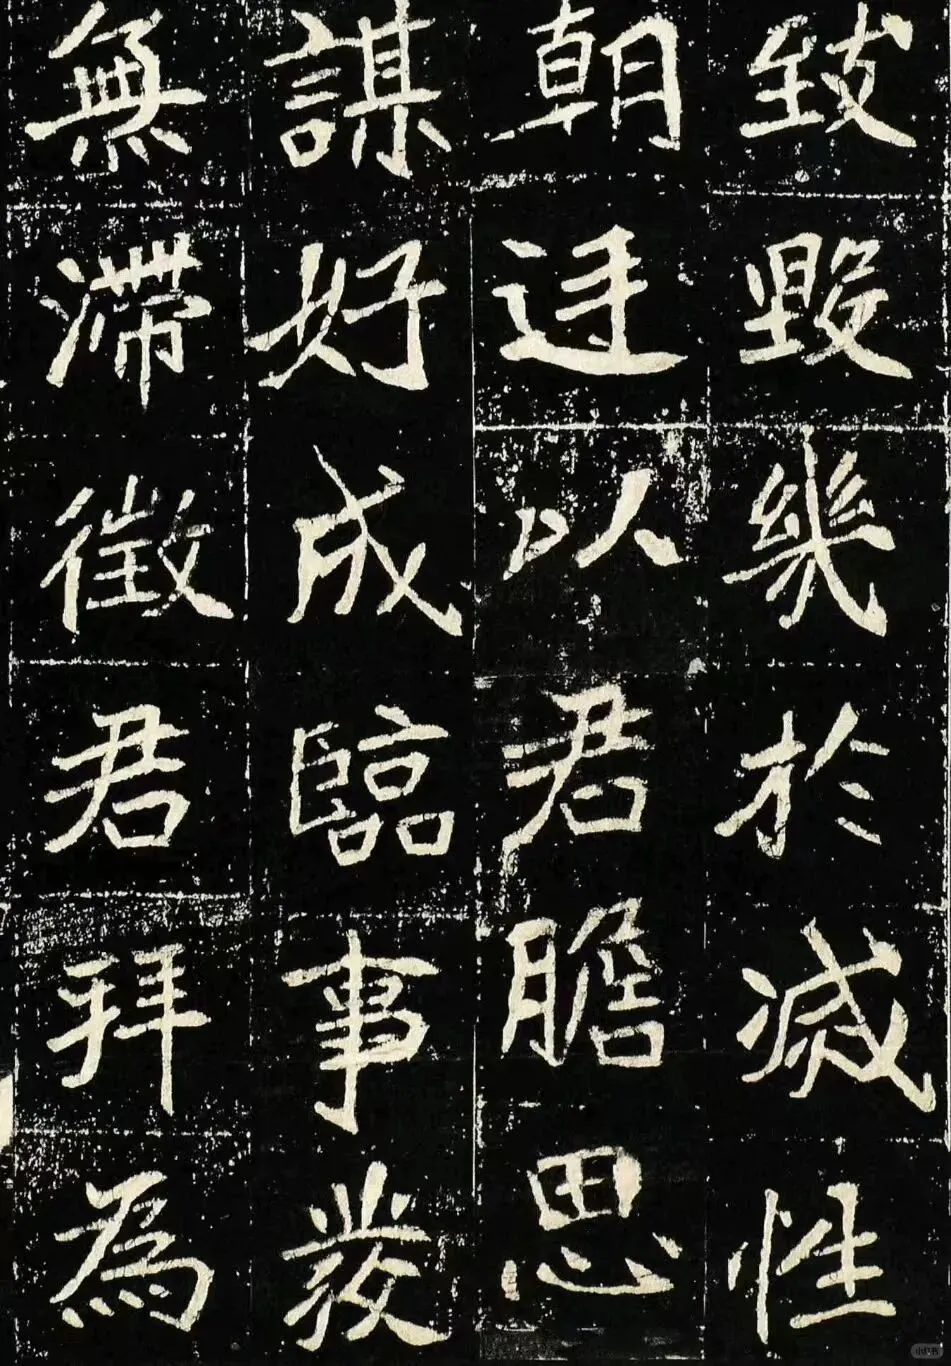 致毀幾於滅性
朝廷以君膽思
謀好成臨事發
無滯徵君拜為
小红书